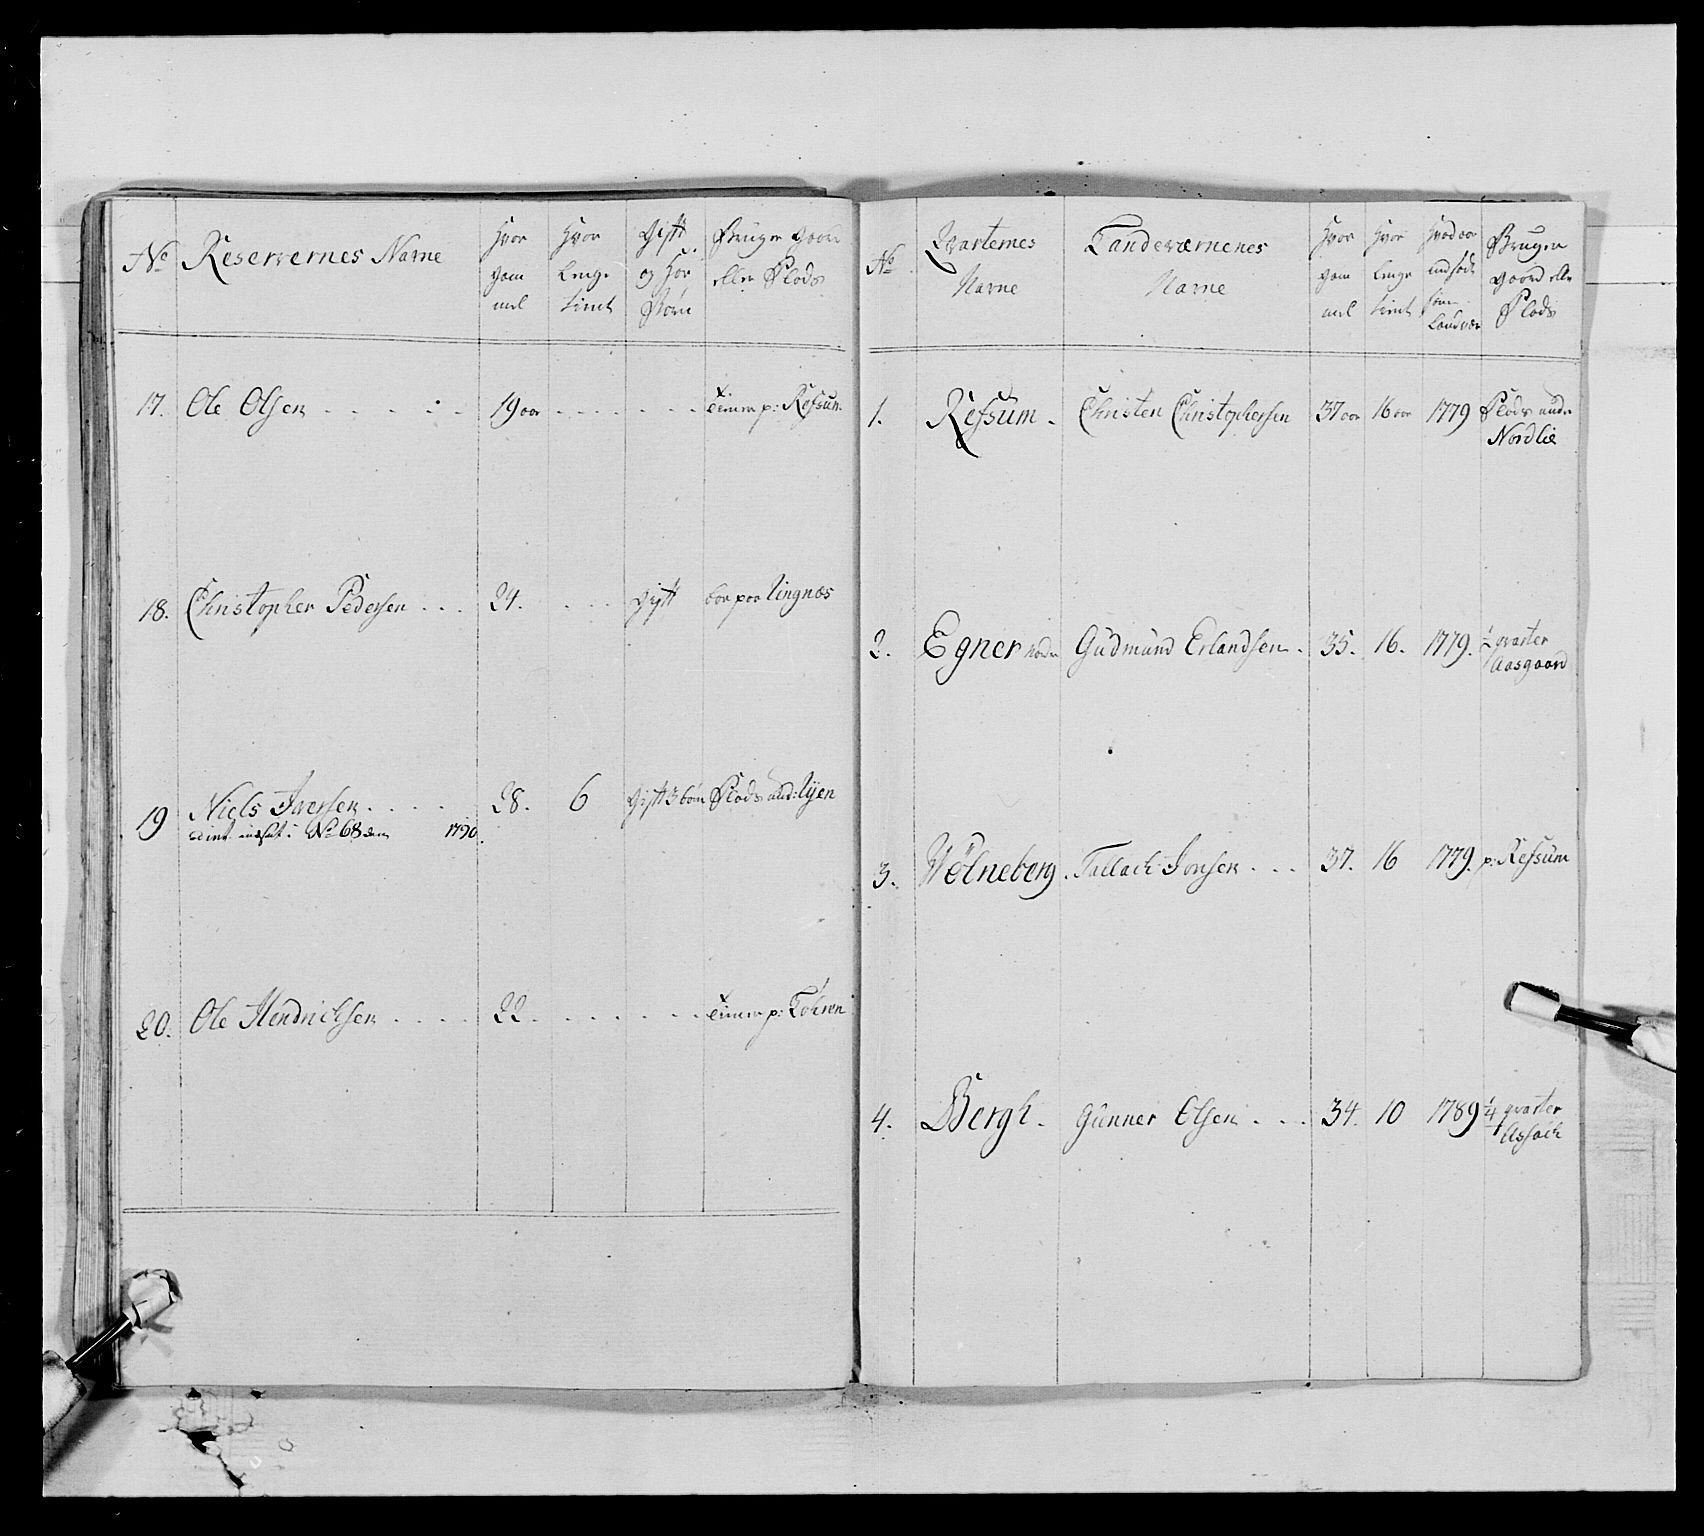 No
Reservernes Navne
Hvor
gam
mel
Hvor
lenge
tient
Gift
og har
Børn
Bruger gaard
eller Plads
17.
Ole Olsen
19 aar
tiener p: Refsum
18.
Christopher Pedersen
24.
Gift
boe paa Tingnæs
19
Niels Iversen
28.
6
Gift 3 børn
Plads und:
No 68 den 1790.
20.
Ole Hendrichsen
22
tiener p:
No
Qvarternes
Navne
Landeværnenes
Navne
Hvor
gam
mel
Hvor
lenge
tient
Hvad aar
indsadt
som
Landvær
Bruger
gaard eller
Plads
1.
Refsum
Christen Christophersen
37 aar
16 aar
1779
Plads under
Nordlie
2.
Egner nordre
Gudmund Erlandsen
35.
16.
1779.
qvarter
Aasgaard
3.
Wølneberg
Tallach Jonsen
37.
16
1779.
p: Refsum
4.
Bergh
Gunner Olsen
34.
10
1789
1/4 qvarter